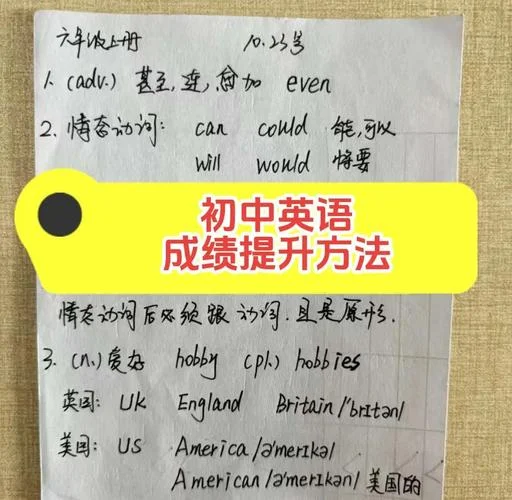 六年级上册 10.23号
1. (adv.) 甚至,连,愈加 even
2. 情态动词: can could 能,可以
will would 将要
初中英语
成绩提升方法
情态动词后必须跟动词.且是原形.
3. (n.)爱好 hobby (pl.) hobbies
英国: UK England Britain /'brɪtən/
美国: US America /ə'merɪkə/
American /ə'merɪkən/ 美国的